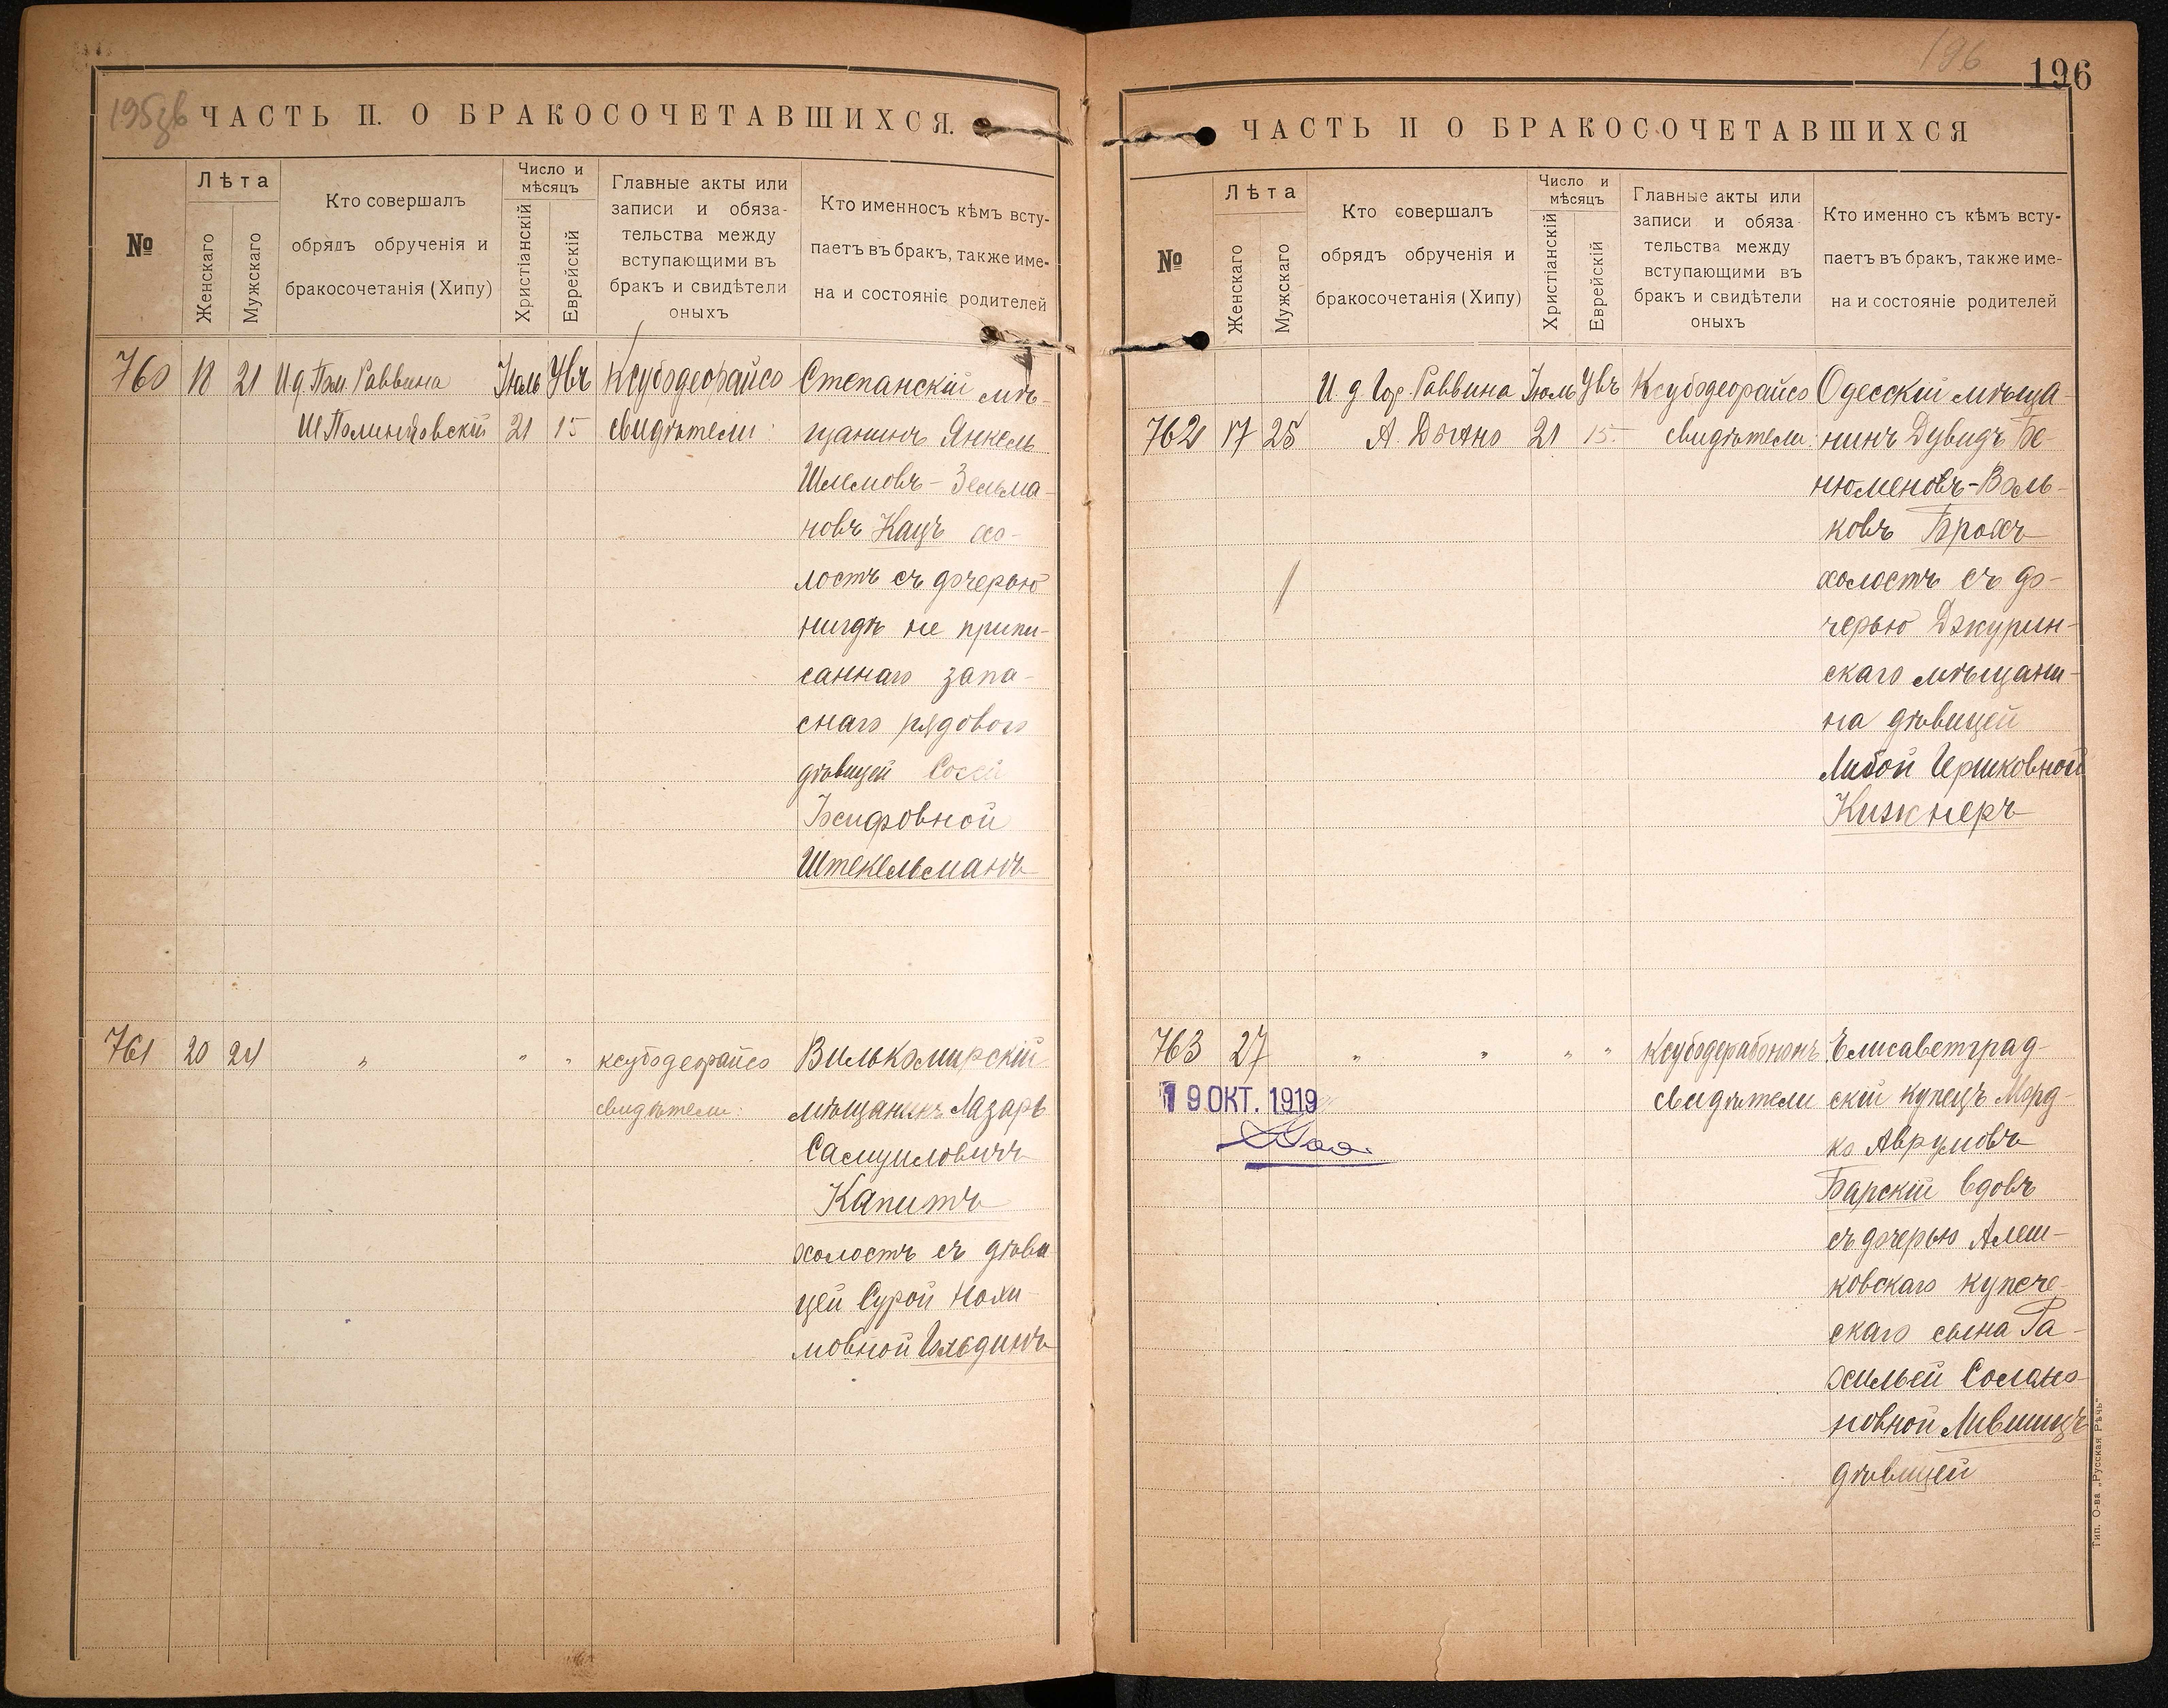 195 зв
ЧАСТЬ II. О БРАКОСОЧЕТАВШИХСЯ.
№
Лѣта
Женскаго
Мужскаго
Кто совершалъ
обрядъ обрученія и
бракосочетанія (Хипу)
Число и
мѣсяцъ
Христіанскій
Еврейскій
Главные акты или
записи и обяза-
тельства между
вступающими въ
бракъ и свидѣтели
оныхъ
Кто именносъ кѣмъ всту-
паетъ въ бракъ, также име-
на и состояніе родителей
760 18 21 И д. Пом. Раввина Іюль Увъ Ксубодеорайсо Степанскій мѣ-
21 15 свидѣтели: щанинъ Янкель
Шлемовъ-Зельма-
новъ Кацъ хо-
лостъ съ дочерью
нигдѣ не припи-
саннаго запа-
снаго рядового
дѣвицей Сосей
Іосифовной
Штекельманъ
761 20 24 " " " ксубодеорайсо Вилькомирскій
свидѣтели: мѣщанинъ Лазарь
Самуиловичъ
Капитъ
холостъ съ дѣви
цей Сурой Нохи
мовной Гольдинъ
196
196
ЧАСТЬ II О БРАКОСОЧЕТАВШИХСЯ
№
Лѣта
Женскаго
Мужскаго
Кто совершалъ
обрядъ обрученія и
бракосочетанія (Хипу)
Число и
мѣсяцъ
Христіанскій
Еврейскій
Главные акты или
записи и обяза-
тельства между
вступающими въ
бракъ и свидѣтели
оныхъ
Кто именно съ кѣмъ всту-
паетъ въ бракъ, также име-
на и состояніе родителей
И. д. Гор. Раввина Іюль Увъ Ксубодеорайсо Одесскій мѣща-
762 17 25 А. 21 15 свидѣтели: нинъ Дувидъ Бе-
нюменовъ-Воль-
ковъ Брохъ
холостъ съ до-
черью Джурин-
скаго мѣщани-
на дѣвицей
Либой Гершковной
Кижнеръ
763 27 " " " " Ксубодерабононъ Елисаветград-
19 ОКТ. 1919 свидѣтели скій купецъ Морд-
ко Аврумовъ
Барскій вдовъ
съ дочерью Алеш-
ковскаго купече-
скаго сына Ра-
хилью Соломо-
новной Лившицъ
дѣвицей
Тип. О-ва „Русская Рѣчь"